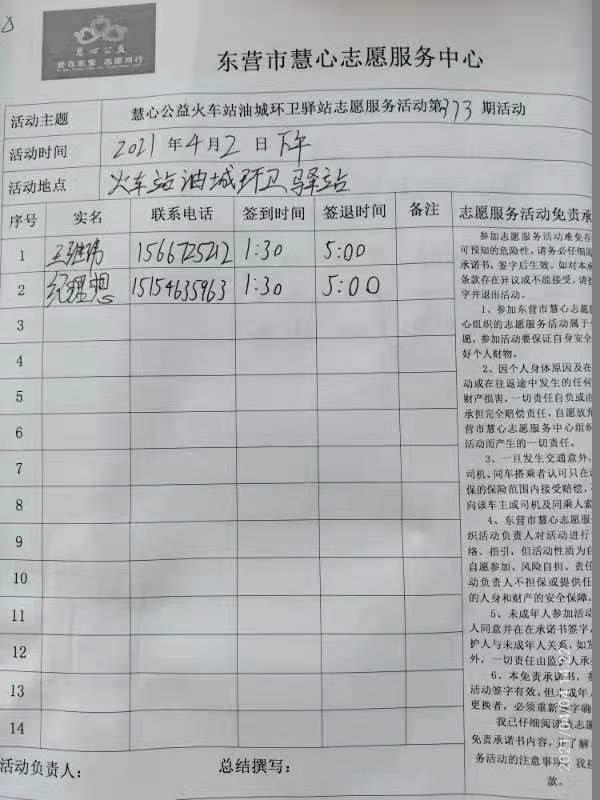 慧心公益
爱在东营 志愿同行
东营市慧心志愿服务中心
活动主题 慧心公益火车站油城环卫驿站志愿服务活动第373期活动
活动时间 2021年4月2日下午
活动地点 火车站油城环卫驿站
序号 实名 联系电话 签到时间 签退时间 备注
1 王继伟 1566725212 1:30 5:00
2 纪理想 15154635963 1:30 5:00
3
4
5
6
7
8
9
10
11
12
13
14
活动负责人: 总结撰写:
志愿服务活动免责承
参加志愿服务活动难免存
可预知的危险性，请务必仔细阅
承诺书，签字后生效。如对本
条款存在异议或不能接受，请
字并退出活动。
1、参加东营市慧心志愿
心组织的志愿服务活动属于
愿，参加活动要保证自身安全
好个人财物。
2、因个人身体原因及在
动或在往返途中发生的任何
财产损害，一切责任自负或由
承担完全赔偿责任，自愿放弃
营市慧心志愿服务中心组织
活动而产生的一切责任。
3、一旦发生交通意外，
司机、同车搭乘者认可只在
保的保险范围内接受赔偿，
向该车主或司机及同乘人索
4、东营市慧心志愿服
组织活动负责人对活动进行
络、指引，但活动性质为自
自愿参加、风险自担、责任
动负责人不担保或提供任
的人身和财产的安全保障。
5、未成年人参加活动
人同意并在在承诺书签字，
护人与未成年人关系，如发
外，一切责任由监护人承
6、本免责承诺书，
活动签字有效，但未成年
更换者，必须重新签字确
我已仔细阅读志愿
免责承诺书内容，并了解
务活动的注意事项，我
款。